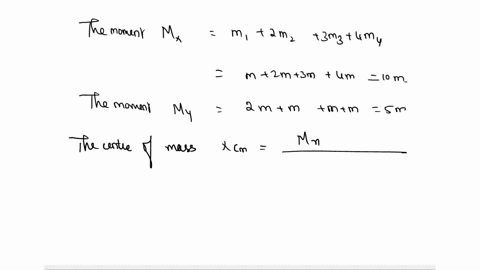 The moment Mx = m1 + 2m2 + 3m3 + 4m4
= m + 2m + 3m + 4m = 10 m.
The moment My = 2m + m + m + m = 5m
The centre of mass xcm = Mx